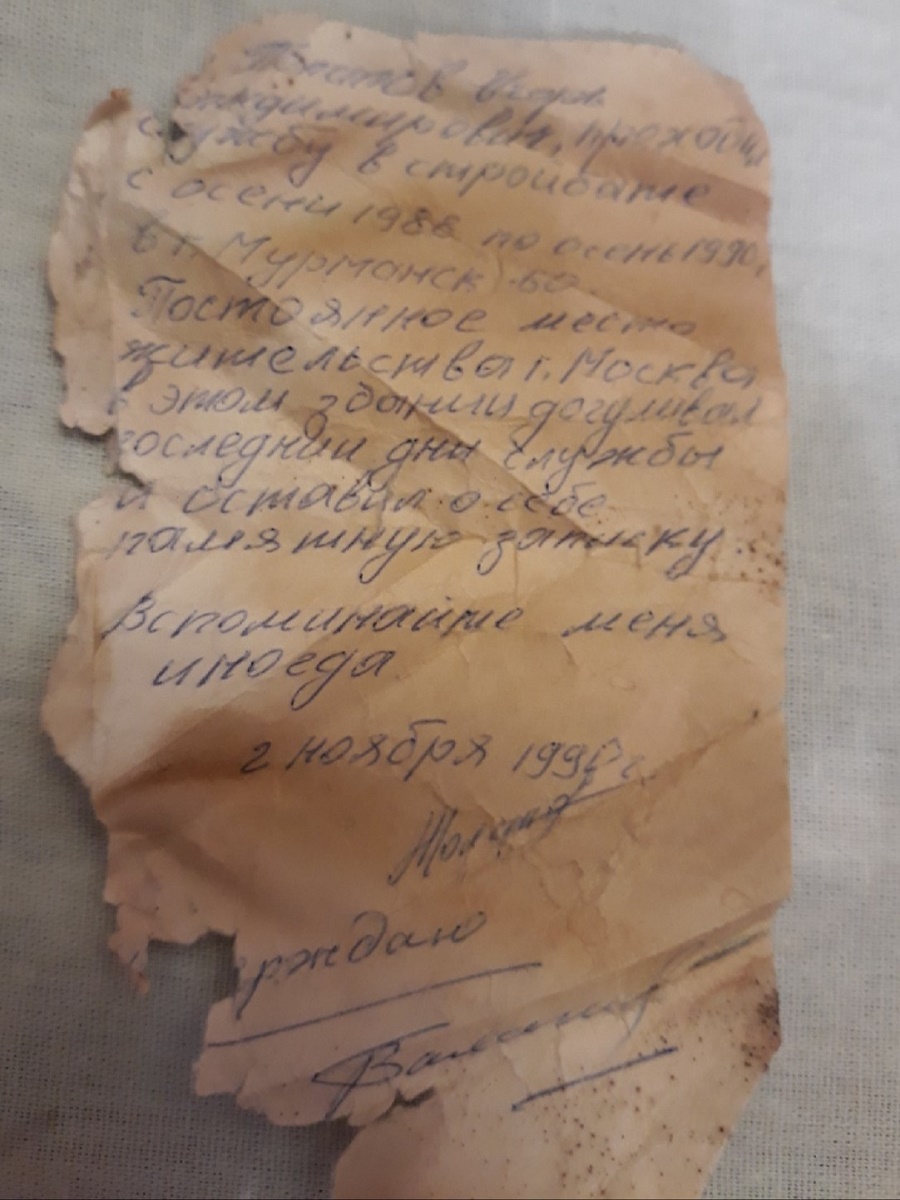 Толстов Игорь
ладимирович, проходил
службу в стройбате
с осени 1988 по осень 1990,
в г. Мурманск-60.
Постоянное место
жительства г. Москва
в этом здании догуливал
последнии дни службы
и оставил о себе
памятную записку.
Вспоминайте меня
иногда
2 ноября 1990 г.
рждаю